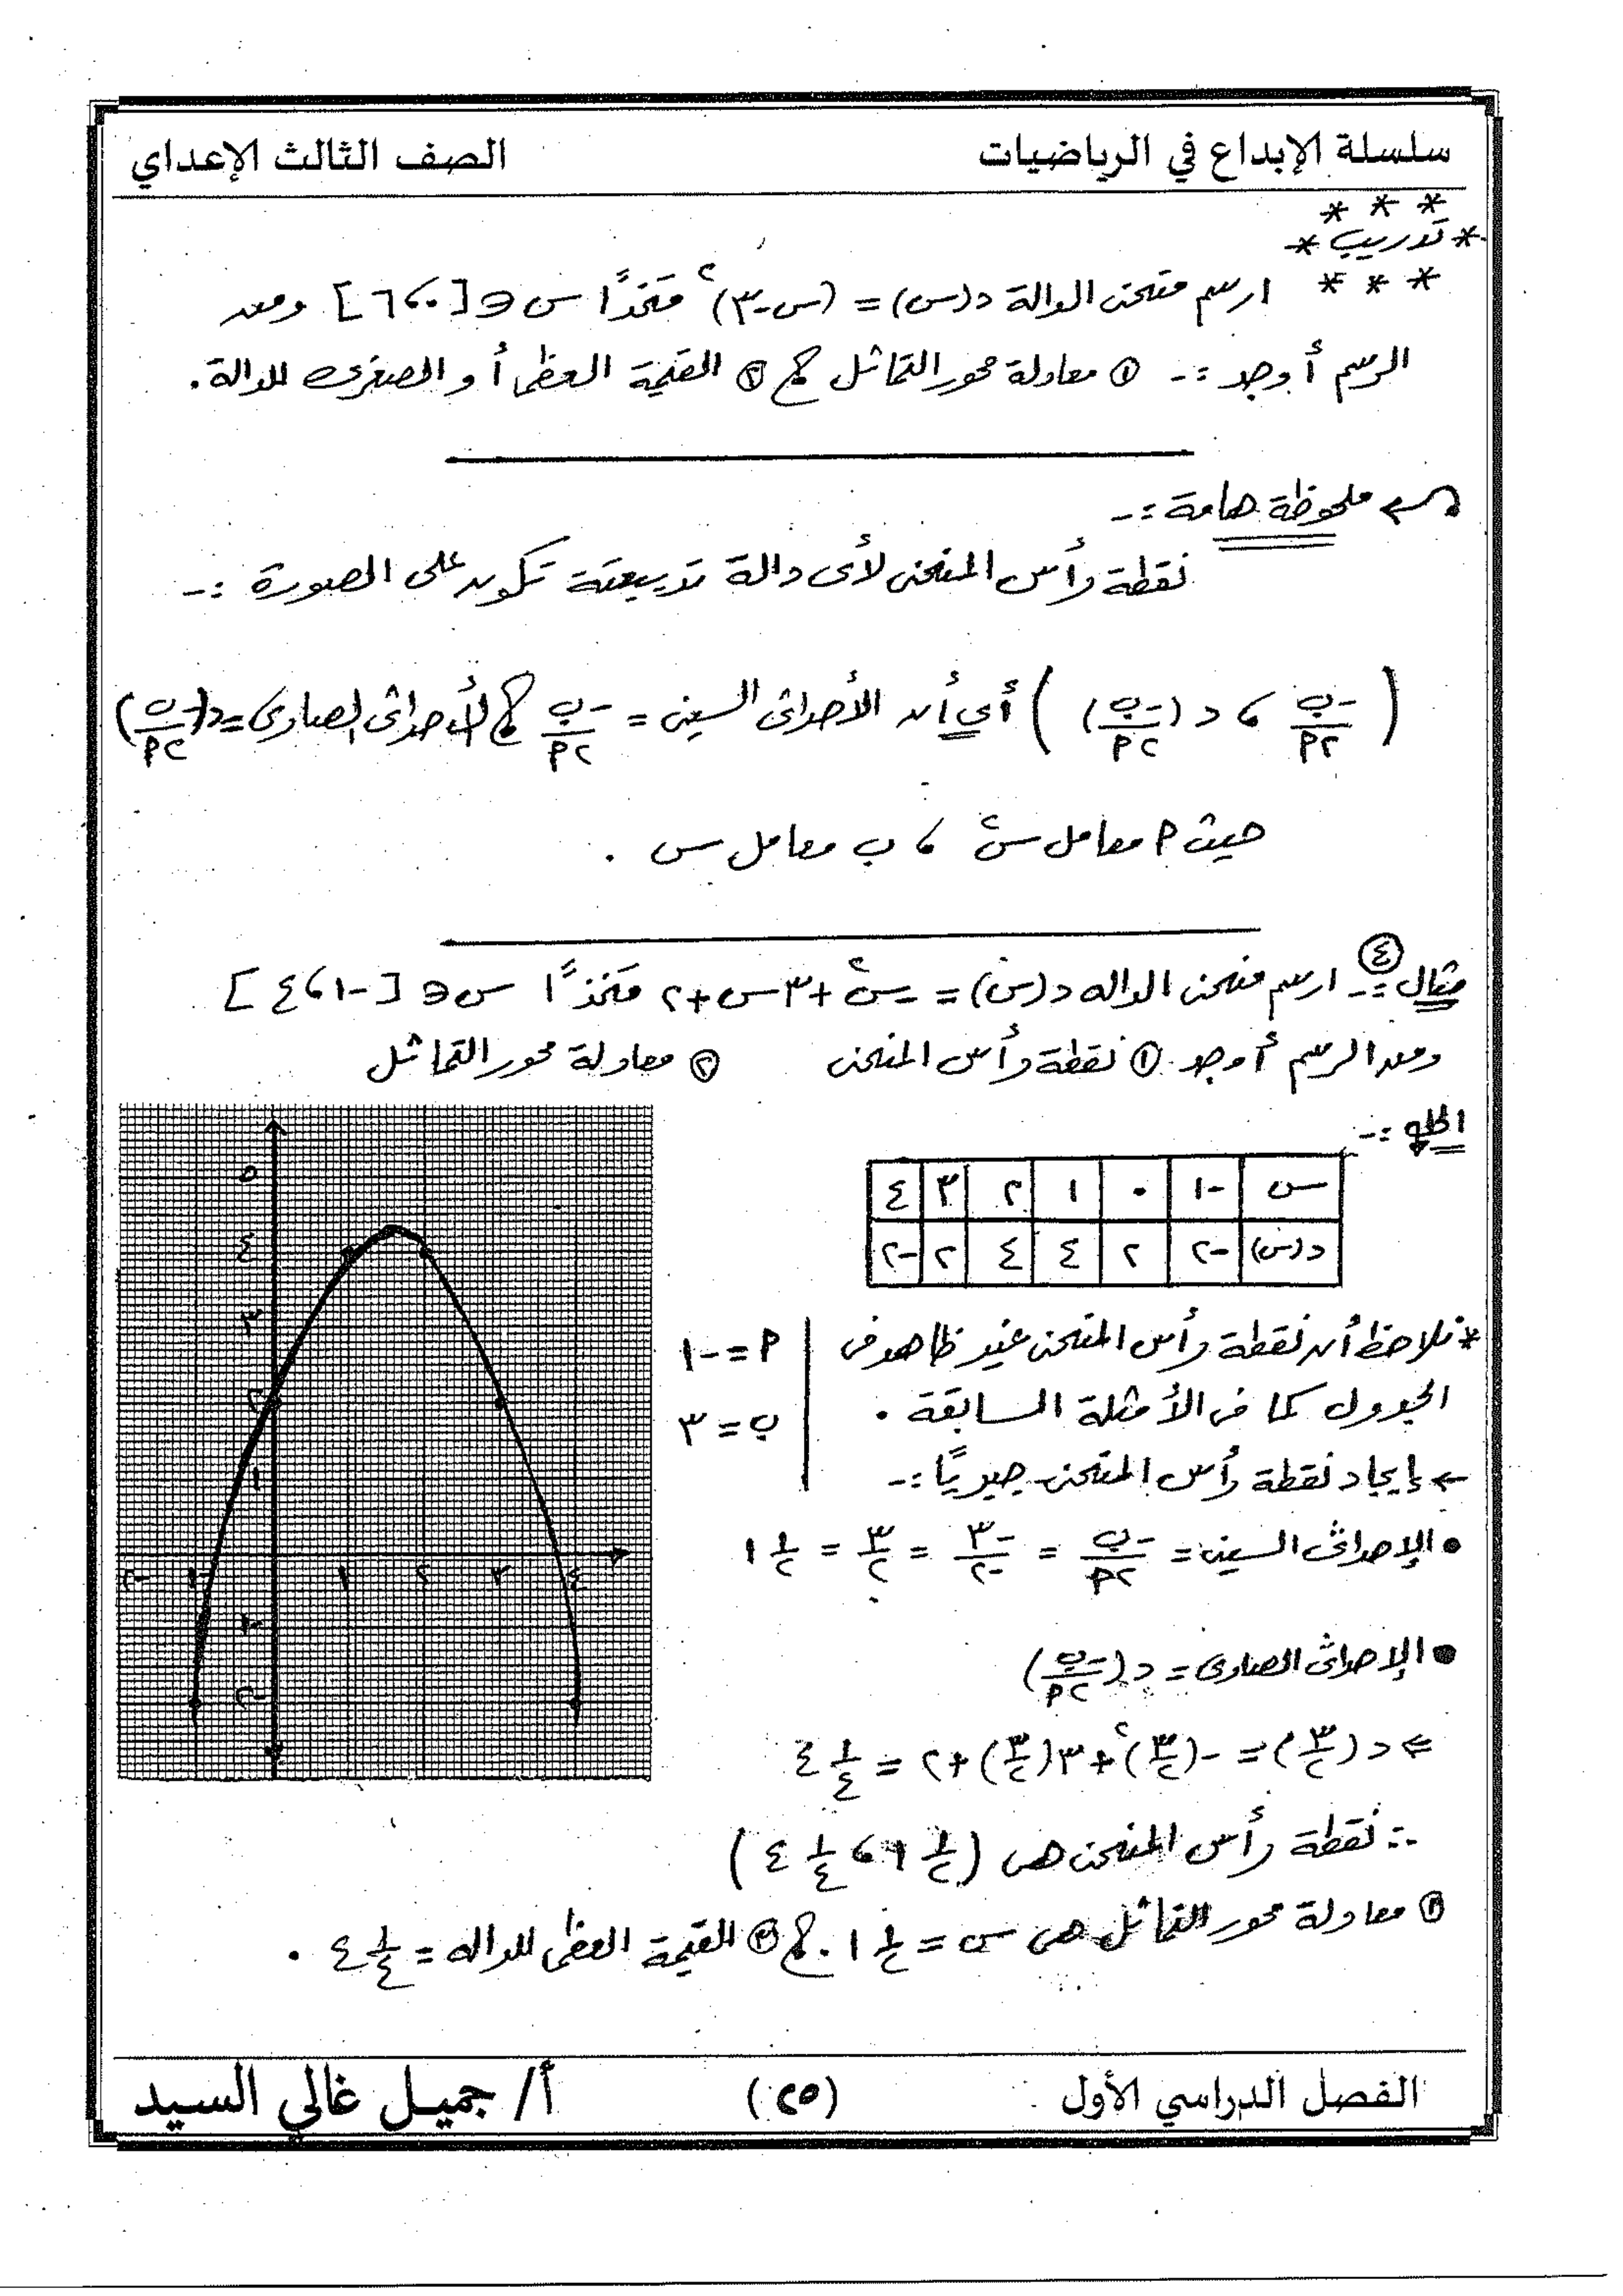 سلسلة الإبداع في الرياضيات الصف الثالث الإعداي
* * *
* تدريب *
* * * ارسم منحنى الدالة د(س) = (س-٣)^٢ متخذًا س ∈ [٠، ٦] ومن
الرسم أوجد :- ① معادلة محور التماثل ② القيمة العظمى أو الصغرى للدالة .
ملحوظة هامة :-
نقطة رأس المنحنى لأى دالة تربيعية تكون على الصورة :-
(-ب/٢أ ، د(-ب/٢أ)) أي أن الأحداثى السينى = -ب/٢أ ، الأحداثى الصادى = د(-ب/٢أ)
حيث أ معامل س^٢ ، ب معامل س .
مثال ④ :- ارسم منحنى الداله د(س) = -س^٢ + ٣س + ٢ متخذًا س ∈ [-١، ٤]
ومن الرسم أوجد ① نقطة رأس المنحنى ② معادلة محور التماثل
الحل :-
س -١ ٠ ١ ٢ ٣ ٤
د(س) -٢ ٢ ٤ ٤ ٢ -٢
* نلاحظ أن نقطة رأس المنحنى غير ظاهره فى
الجدول كما فى الأمثلة السابقة .
أ = -١
ب = ٣
← إيجاد نقطة رأس المنحنى جبريًا :-
• الإحداثى السينى = -ب/٢أ = -٣/-٢ = ٣/٢ = ١ ١/٢
• الإحداثى الصادى = د(-ب/٢أ)
⇐ د(٣/٢) = -(٣/٢)^٢ + ٣(٣/٢) + ٢ = ٤ ١/٤
∴ نقطة رأس المنحنى هى (١ ١/٢ ، ٤ ١/٤)
② معادلة محور التماثل هى س = ١ ١/٢ . ③ القيمة العظمى للداله = ٤ ١/٤ .
٥
٤
٣
٢
١
-٢ -١ ١ ٢ ٣ ٤
-١
-٢
الفصل الدراسي الأول (٢٥) أ/ جميل غالي السيد